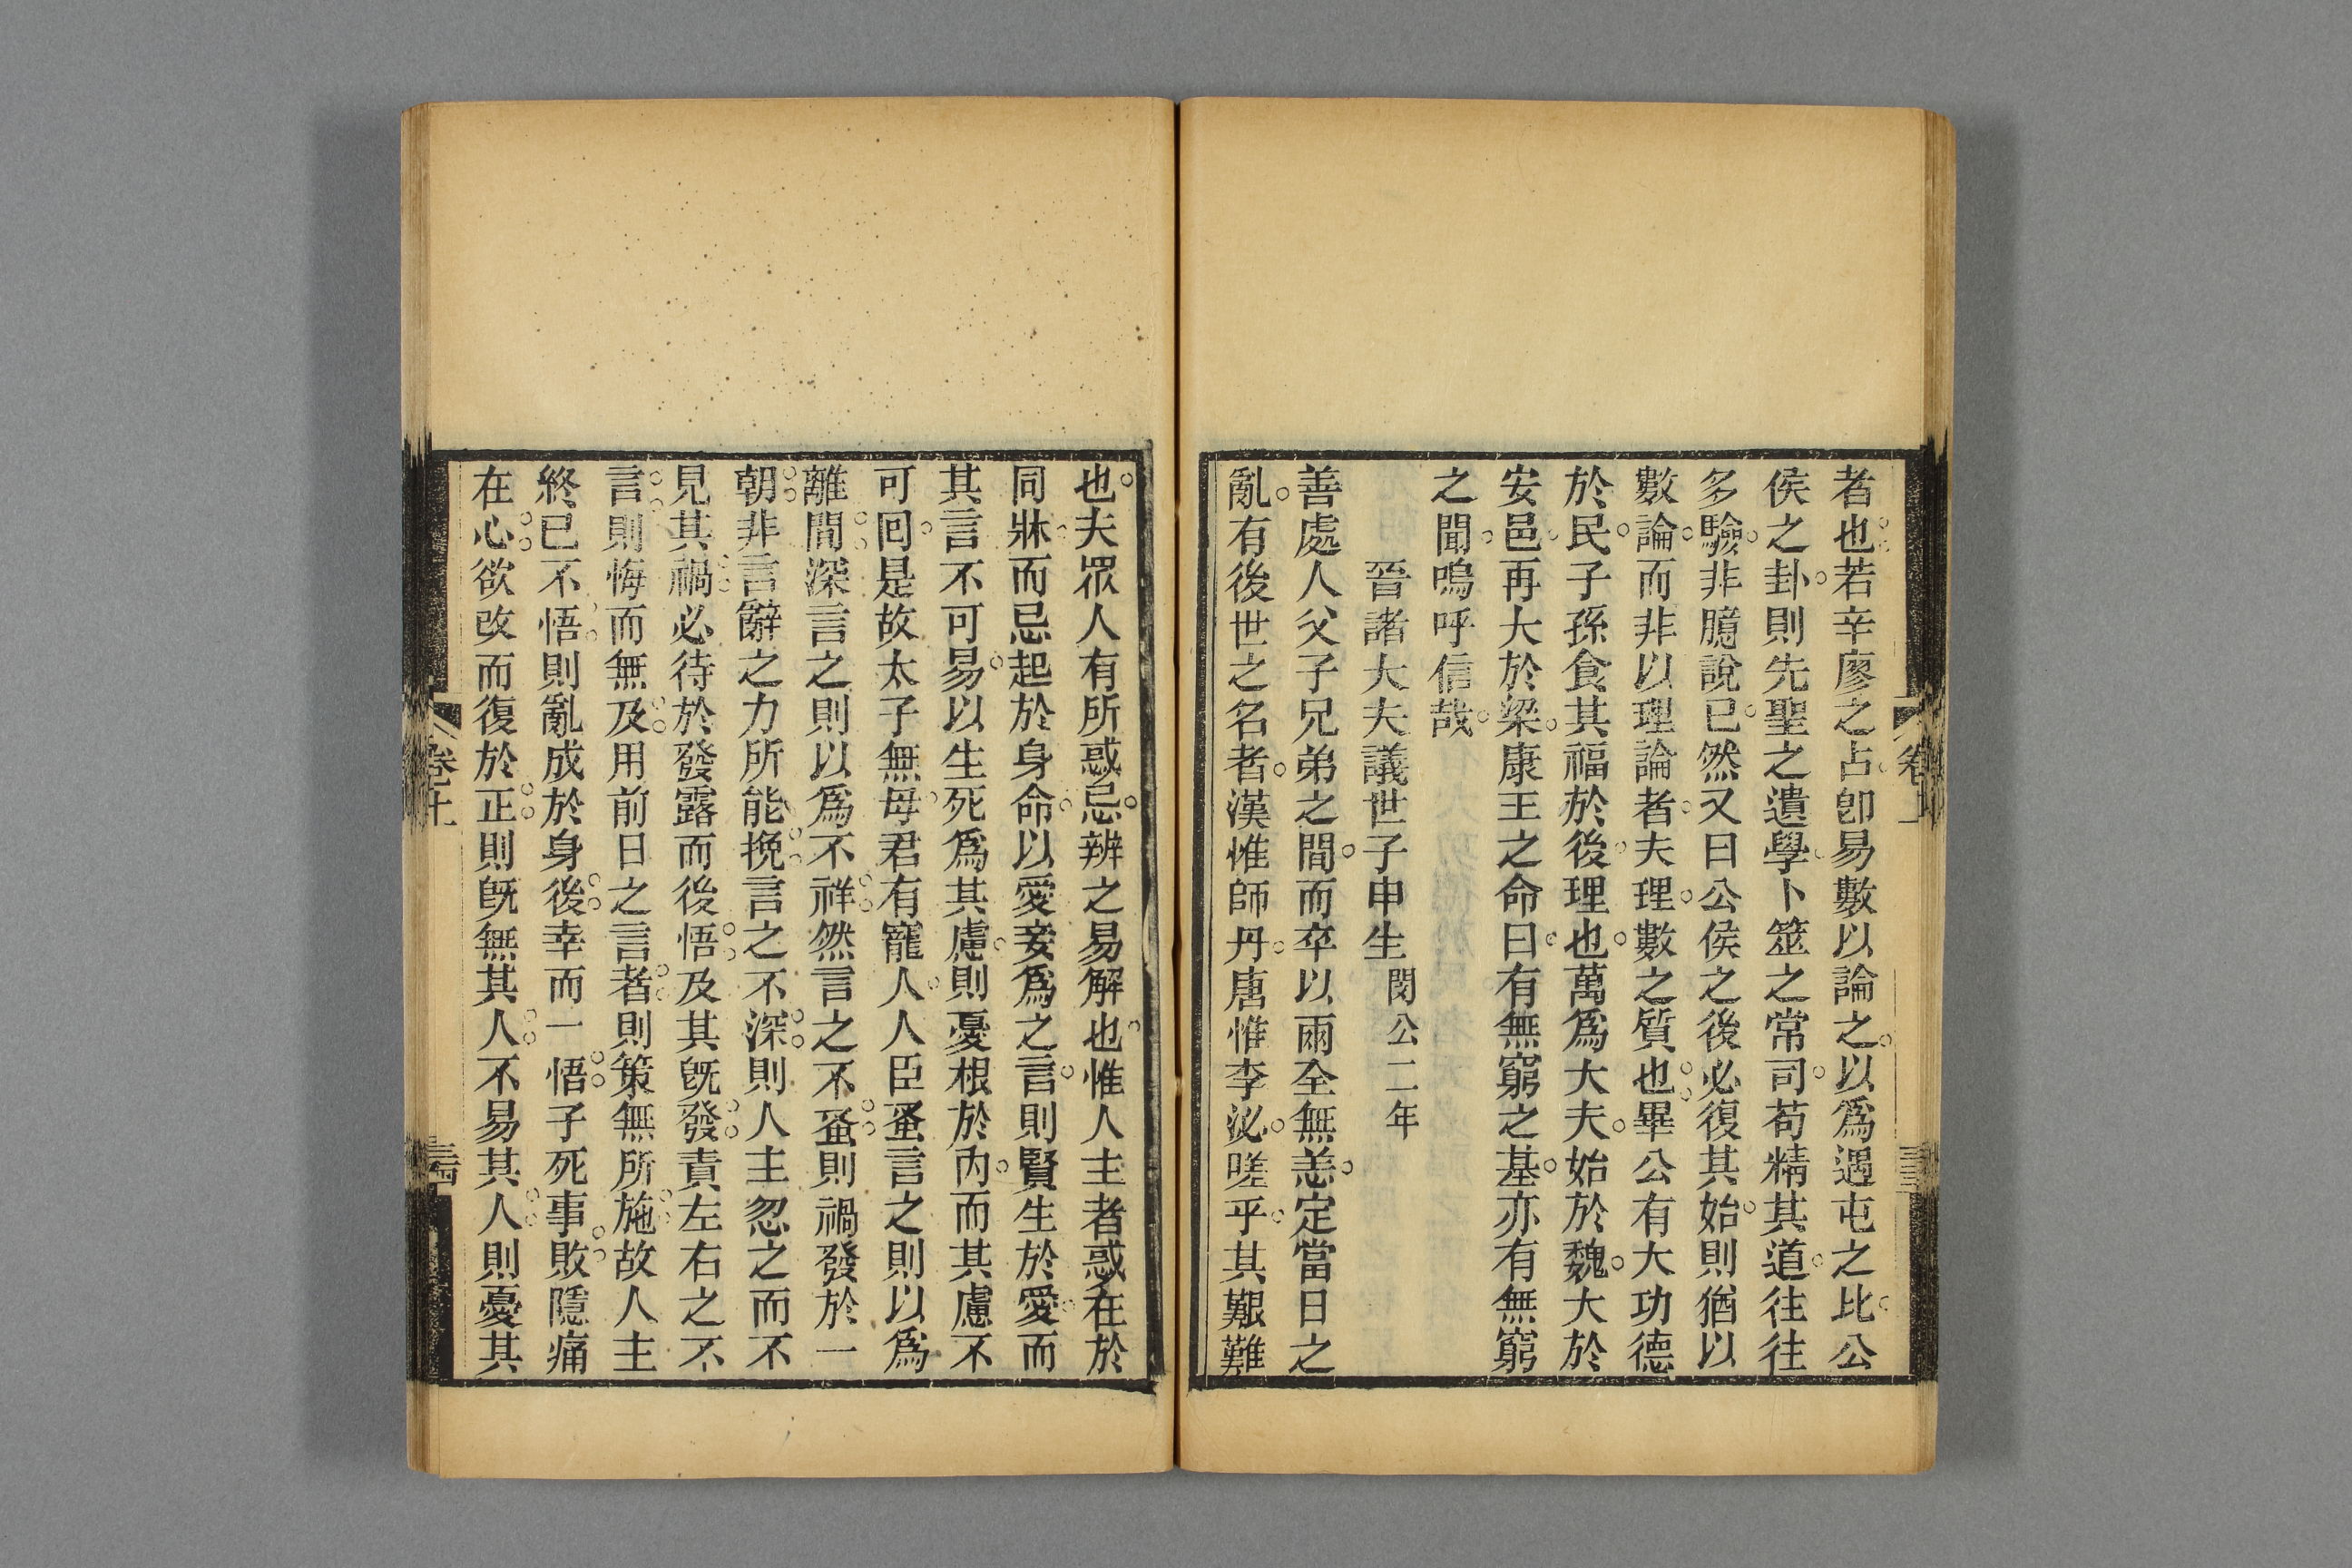 者也若辛廖之占卽易數以論之以爲遇屯之比公
侯之卦則先聖之遺學卜筮之常司苟精其道往往
多驗非臆說已然又曰公侯之後必復其始則猶以
數論而非以理論者夫理數之質也畢公有大功德
於民子孫食其福於後理也萬爲大夫始於魏大於
安邑再大於梁康王之命曰有無窮之基亦有無窮
之聞嗚呼信哉
晉諸大夫議世子申生 閔公二年
善處人父子兄弟之間而卒以兩全無恙定當日之
亂有後世之名者漢惟師丹唐惟李泌嗟乎其艱難
也夫眾人有所惑忌辨之易解也惟人主者惑在於
同牀而忌起於身命以愛妾爲之言則賢生於愛而
其言不可易以生死爲其慮則憂根於內而其慮不
可回是故太子無母君有寵人人臣蚤言之則以爲
離間深言之則以爲不祥然言之不蚤則禍發於一
朝非言辭之力所能挽言之不深則人主忽之而不
見其禍必待於發露而後悟及其旣發責左右之不
言則悔而無及用前日之言者則策無所施故人主
終已不悟則亂成於身後幸而一悟子死事敗隱痛
在心欲改而復於正則旣無其人不易其人則憂其
卷十